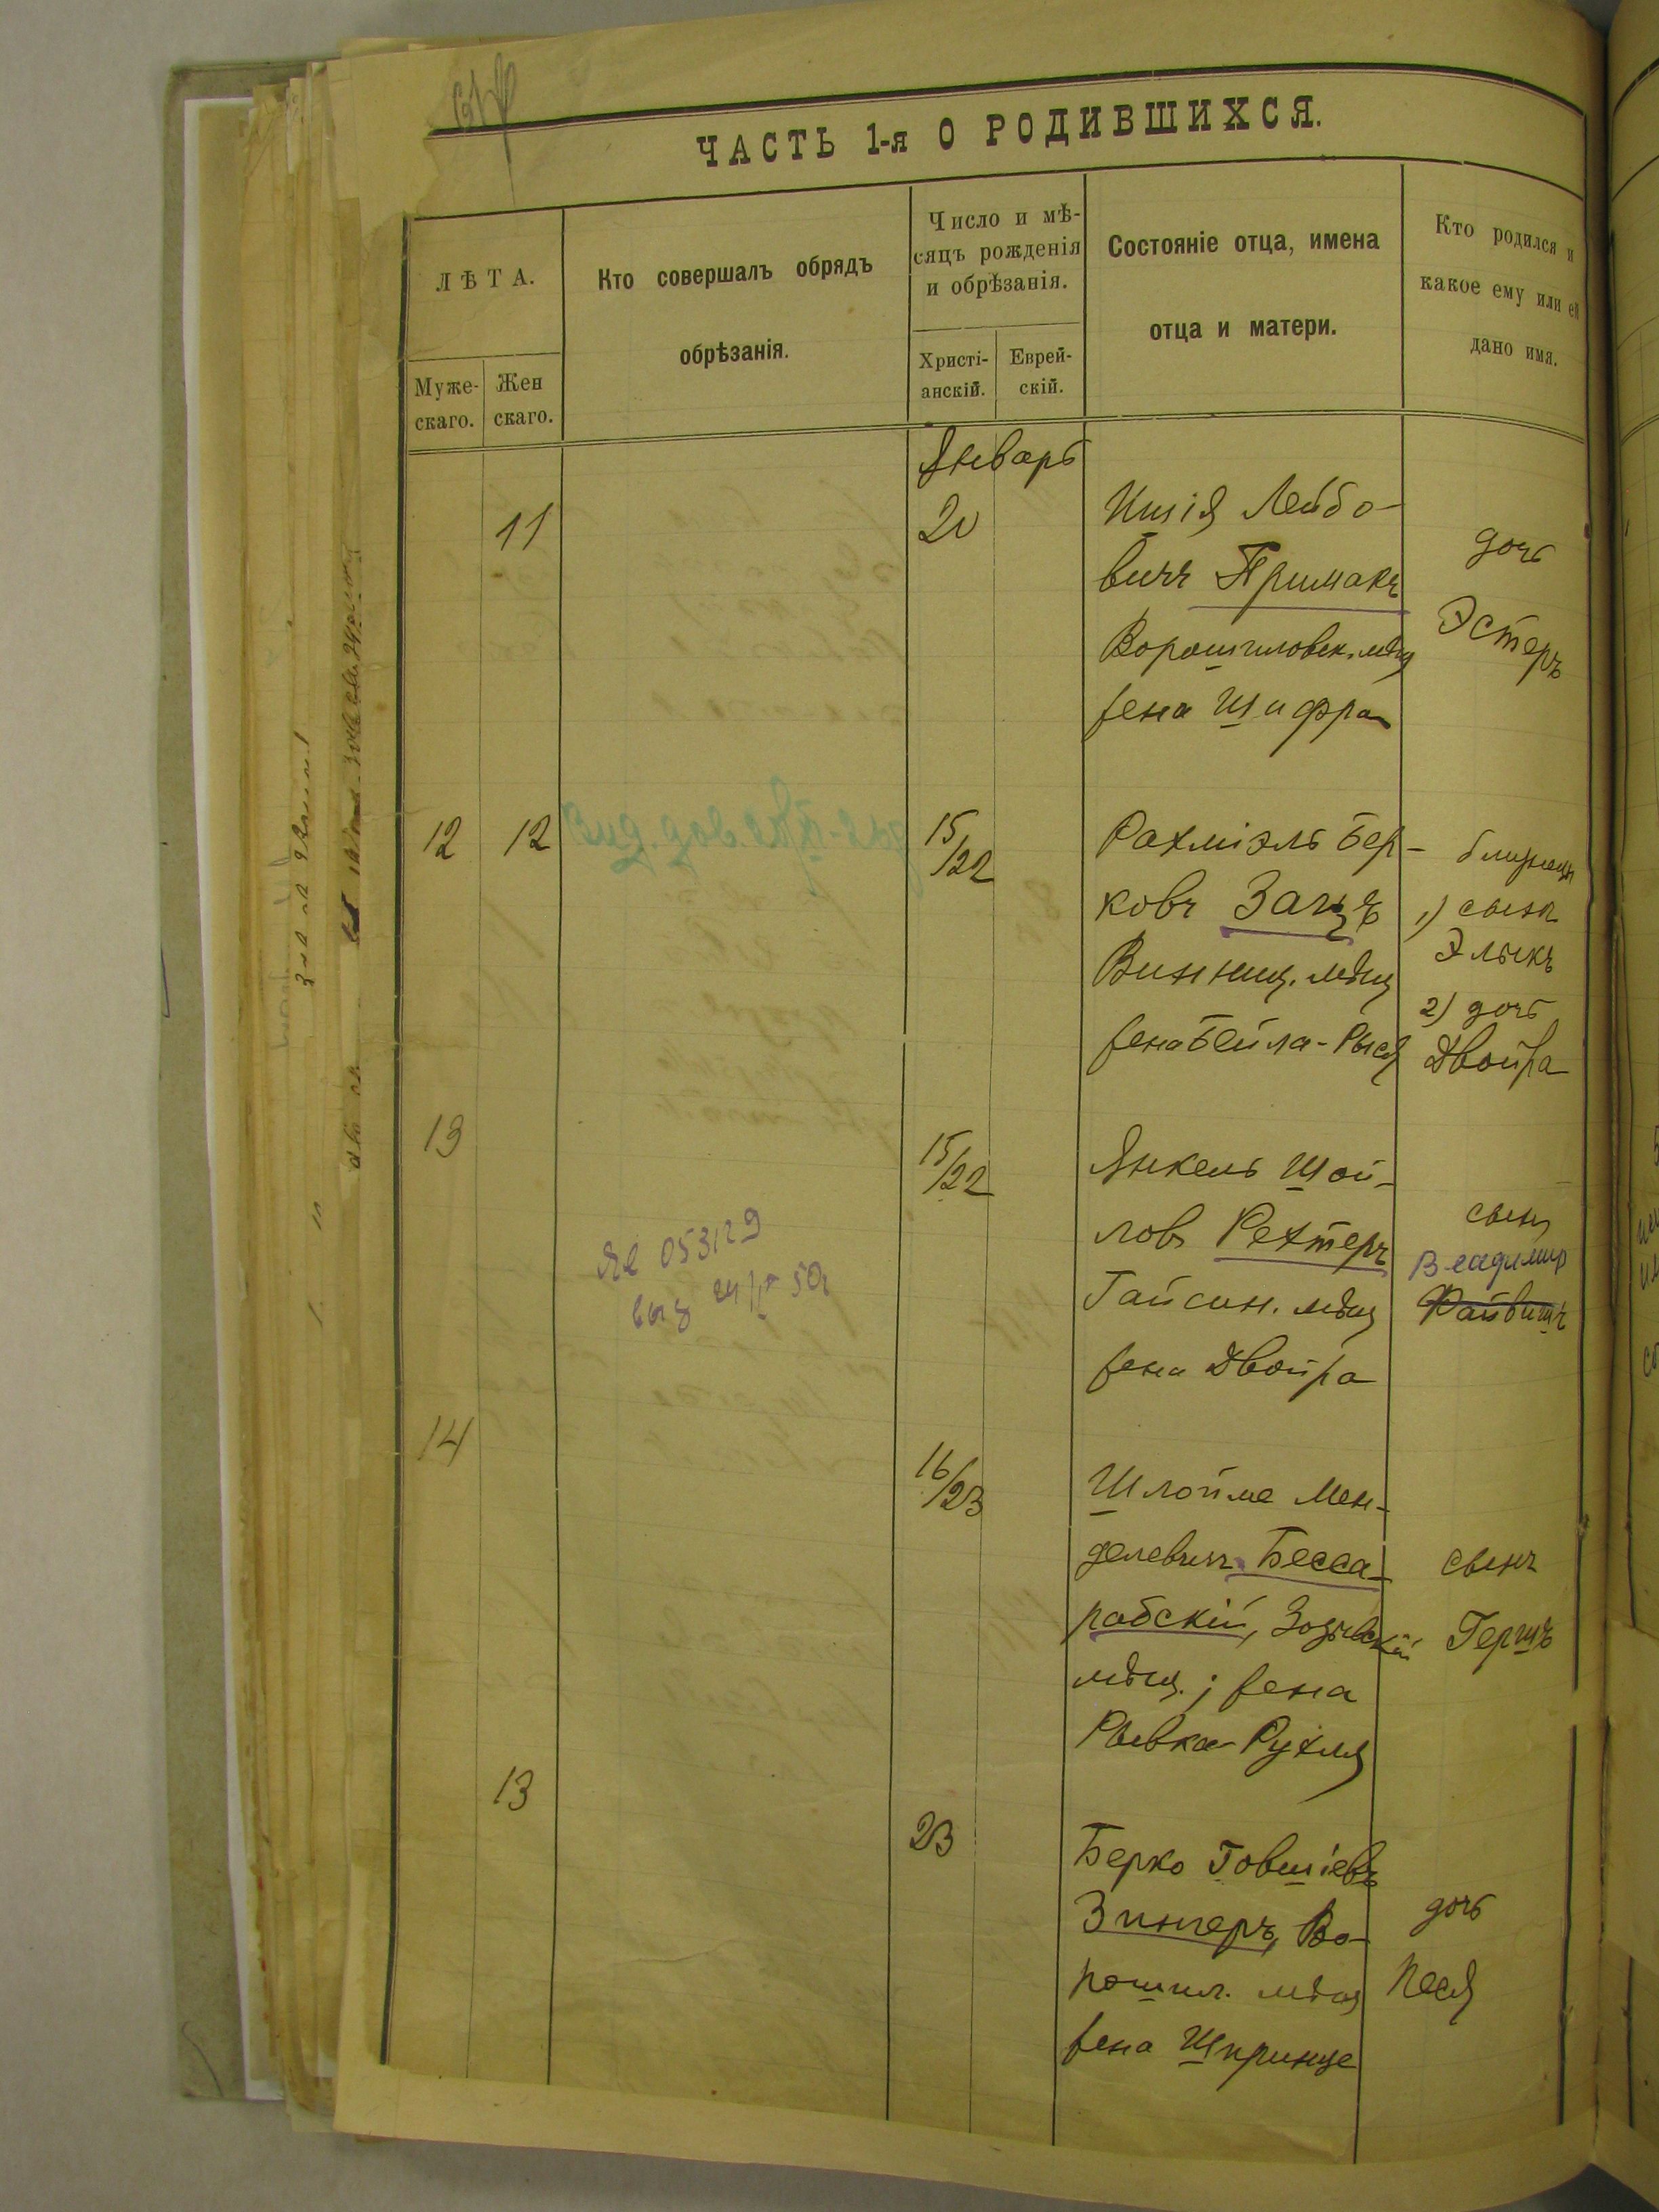 ЧАСТЬ 1-я О РОДИВШИХСЯ.
ЛѢТА.
Муже-
скаго.
Жен
скаго.
Кто совершалъ обрядъ
обрѣзанія.
Число и мѣ-
сяцъ рожденія
и обрѣзанія.
Христі-
анскій.
Еврей-
скій.
Состояніе отца, имена
отца и матери.
Кто родился и
какое ему или ей
дано имя.
Январь
11
20
Ишія Лейбо-
вичъ Примакъ
Ворошиловск. мѣщ
жена Шифра
дочь
Эстеръ
12 12
15/22
Рахміэль Бер-
ковъ Зацъ
Винниц. мѣщ
жена Бейла-Рыся
близнецы
1) сынъ
Элыкъ
2) дочь
Двойра
13
№ 053129
15/22
Янкель Шой-
ловъ Рехтеръ
Гайсин. мѣщ
жена Двойра
сынъ
Владимир
Файвишъ
14
16/23
Шлойме Мен-
делевичъ Бесса-
рабскій,
мѣщ.; жена
Рывка-Рухля
сынъ
Гершъ
13
23
Берко Іовшіевъ
Зингеръ, Во-
рошил. мѣщ
жена Шпринце
дочь
Песя